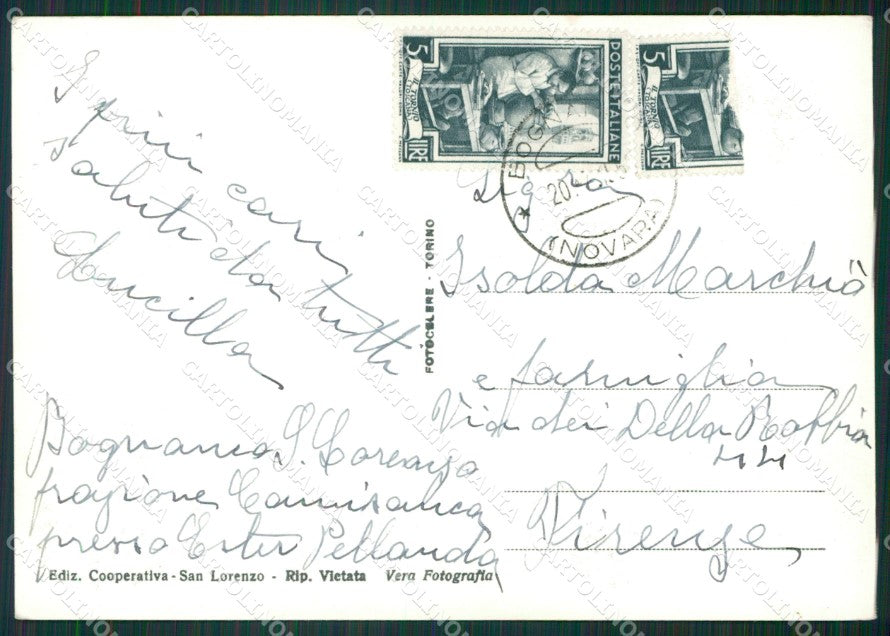 I più cari
saluti da tutti
Lucilla
Bognanco S. Lorenzo
frazione Camisanca
presso Ester Pellanda
Ediz. Cooperativa - San Lorenzo - Rip. Vietata Vera Fotografia
FOTOCELERE - TORINO
5 LIRE
IL TORNIO
POSTE ITALIANE
5 LIRE
IL TORNIO
(NOVARA)
Sig.ra
Isolda Marchiò
e famiglia
Via dei Della Robbia
44
Firenze
CARTOLINOMANIA